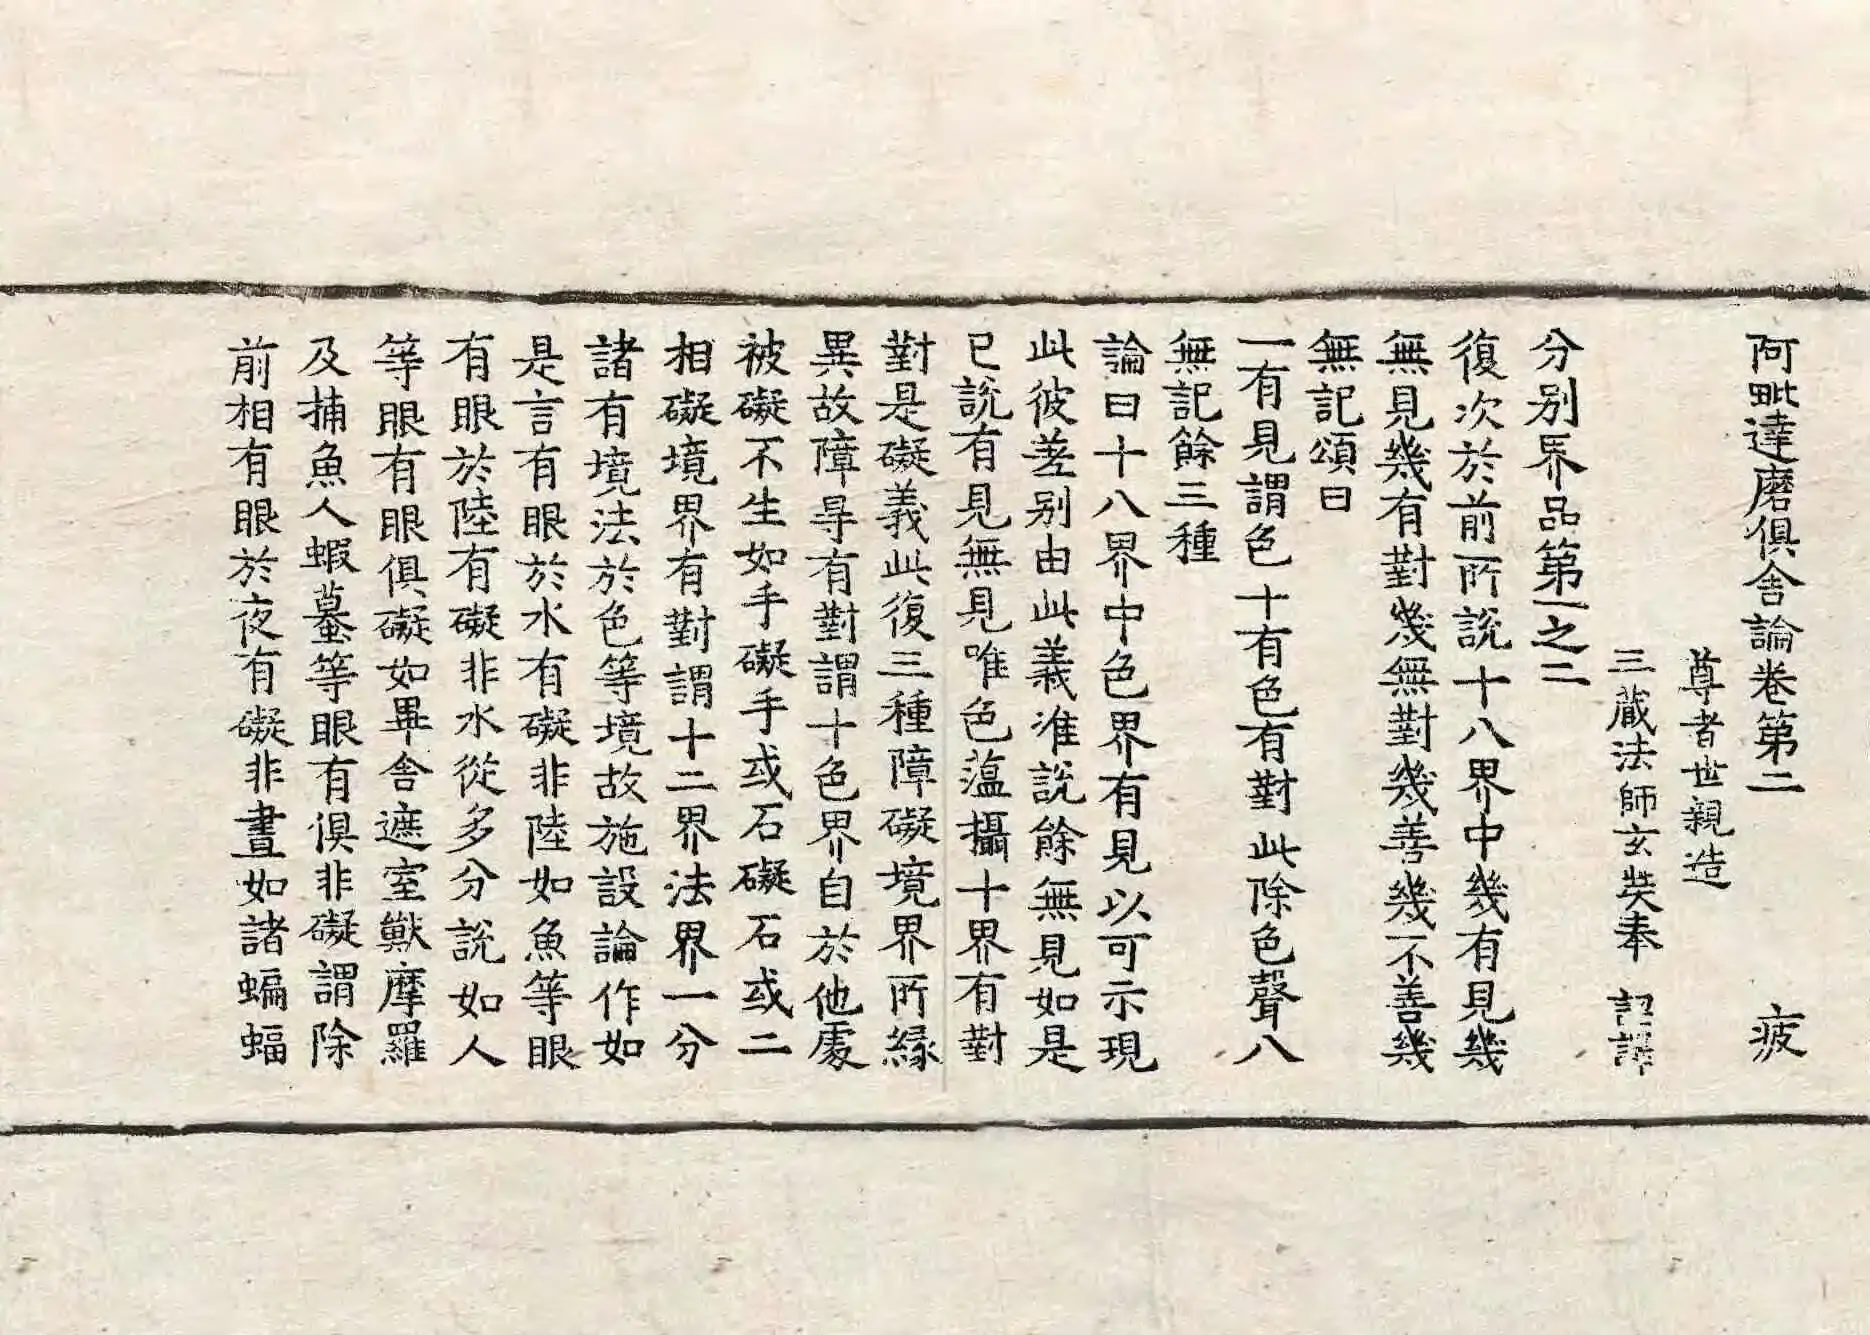 阿毗達磨俱舍論卷第二 疲
尊者世親造
三藏法師玄奘奉 詔譯
分別界品第一之二
復次於前所說十八界中幾有見幾
無見幾有對幾無對幾善幾不善幾
無記頌曰
一有見謂色 十有色有對 此除色聲八
無記餘三種
論曰十八界中色界有見以可示現
此彼差別由此義准說餘無見如是
已說有見無見唯色蘊攝十界有對
對是礙義此復三種障礙境界所緣
異故障㝵有對謂十色界自於他處
被礙不生如手礙手或石礙石或二
相礙境界有對謂十二界法界一分
諸有境法於色等境故施設論作如
是言有眼於水有礙非陸如魚等眼
有眼於陸有礙非水從多分說如人
等眼有眼俱礙如畢舍遮室獸摩羅
及捕魚人蝦蟇等眼有俱非礙謂除
前相有眼於夜有礙非晝如諸蝙蝠